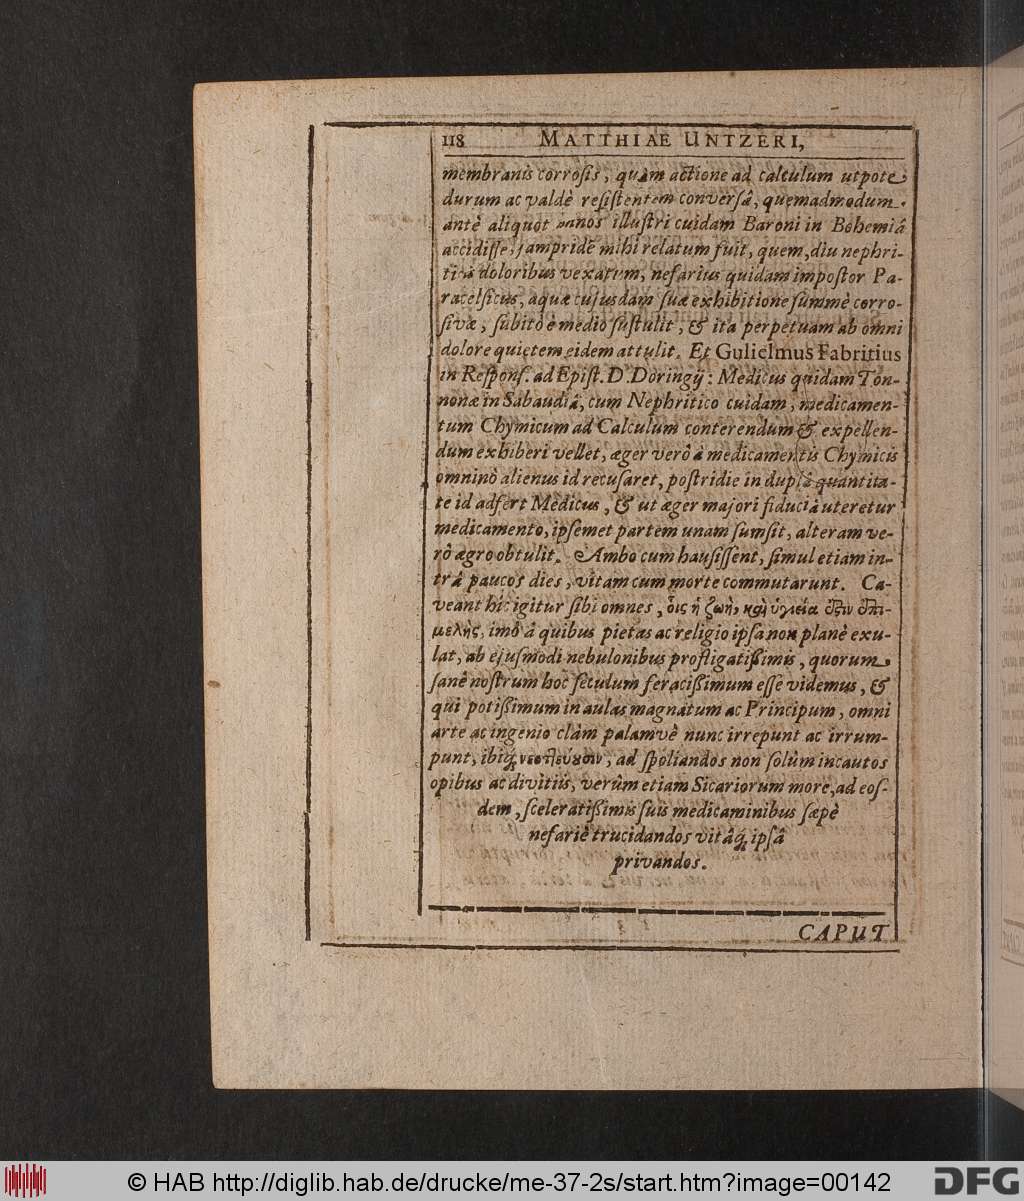 118 MATTHIAE UNTZERI,
membranis corrosis, quàm actione ad calculum utpote
durum ac valdè resistentem conversâ, quemadmodum
antè aliquot annos illustri cuidam Baroni in Bohemiâ
accidisse, jampridē mihi relatum fuit, quem, diu nephri-
ticâ doloribus vexatum, nefarius quidam impostor Pa-
racelsicus, aquæ cujusdam suæ exhibitione summè corro-
sivæ, subitò è medio sustulit, & ita perpetuam ab omni
dolore quietem eidem attulit. Et Gulielmus Fabritius
in Respons. ad Epist. D. Doringij: Medicus quidam Ton-
nonæ in Sabaudiâ, cum Nephritico cuidam, medicamen-
tum Chymicum ad Calculum conterendum & expellen-
dum exhiberi vellet, æger verò à medicamentis Chymicis
omninò alienus id recusaret, postridie in duplâ quantita-
te id adfert Medicus, & ut æger majori fiduciâ uteretur
medicamento, ipsemet partem unam sumsit, alteram ve-
rò ægro obtulit. Ambo cum hausissent, simul etiam in-
trà paucos dies, vitam cum morte commutarunt. Ca-
veant hîc igitur sibi omnes, οἷς ἡ ζωὴ, καὶ ὑγιεία ἐστὶν ἐπι-
μελὴς, imò à quibus pietas ac religio ipsa non planè exu-
lat, ab ejusmodi nebulonibus profligatißimis, quorum
sanè nostrum hoc seculum feracißimum esse videmus, &
qui potißimum in aulas magnatum ac Principum, omni
arte ac ingenio clàm palamvè nunc irrepunt ac irrum-
punt, ibiq́; , ad spoliandos non solùm incautos
opibus ac divitiis, verùm etiam Sicariorum more, ad eos-
dem, sceleratißimis suis medicaminibus sæpè
nefariè trucidandos vitâq́; ipsâ
privandos.
CAPUT
© HAB http://diglib.hab.de/drucke/me-37-2s/start.htm?image=00142
DFG